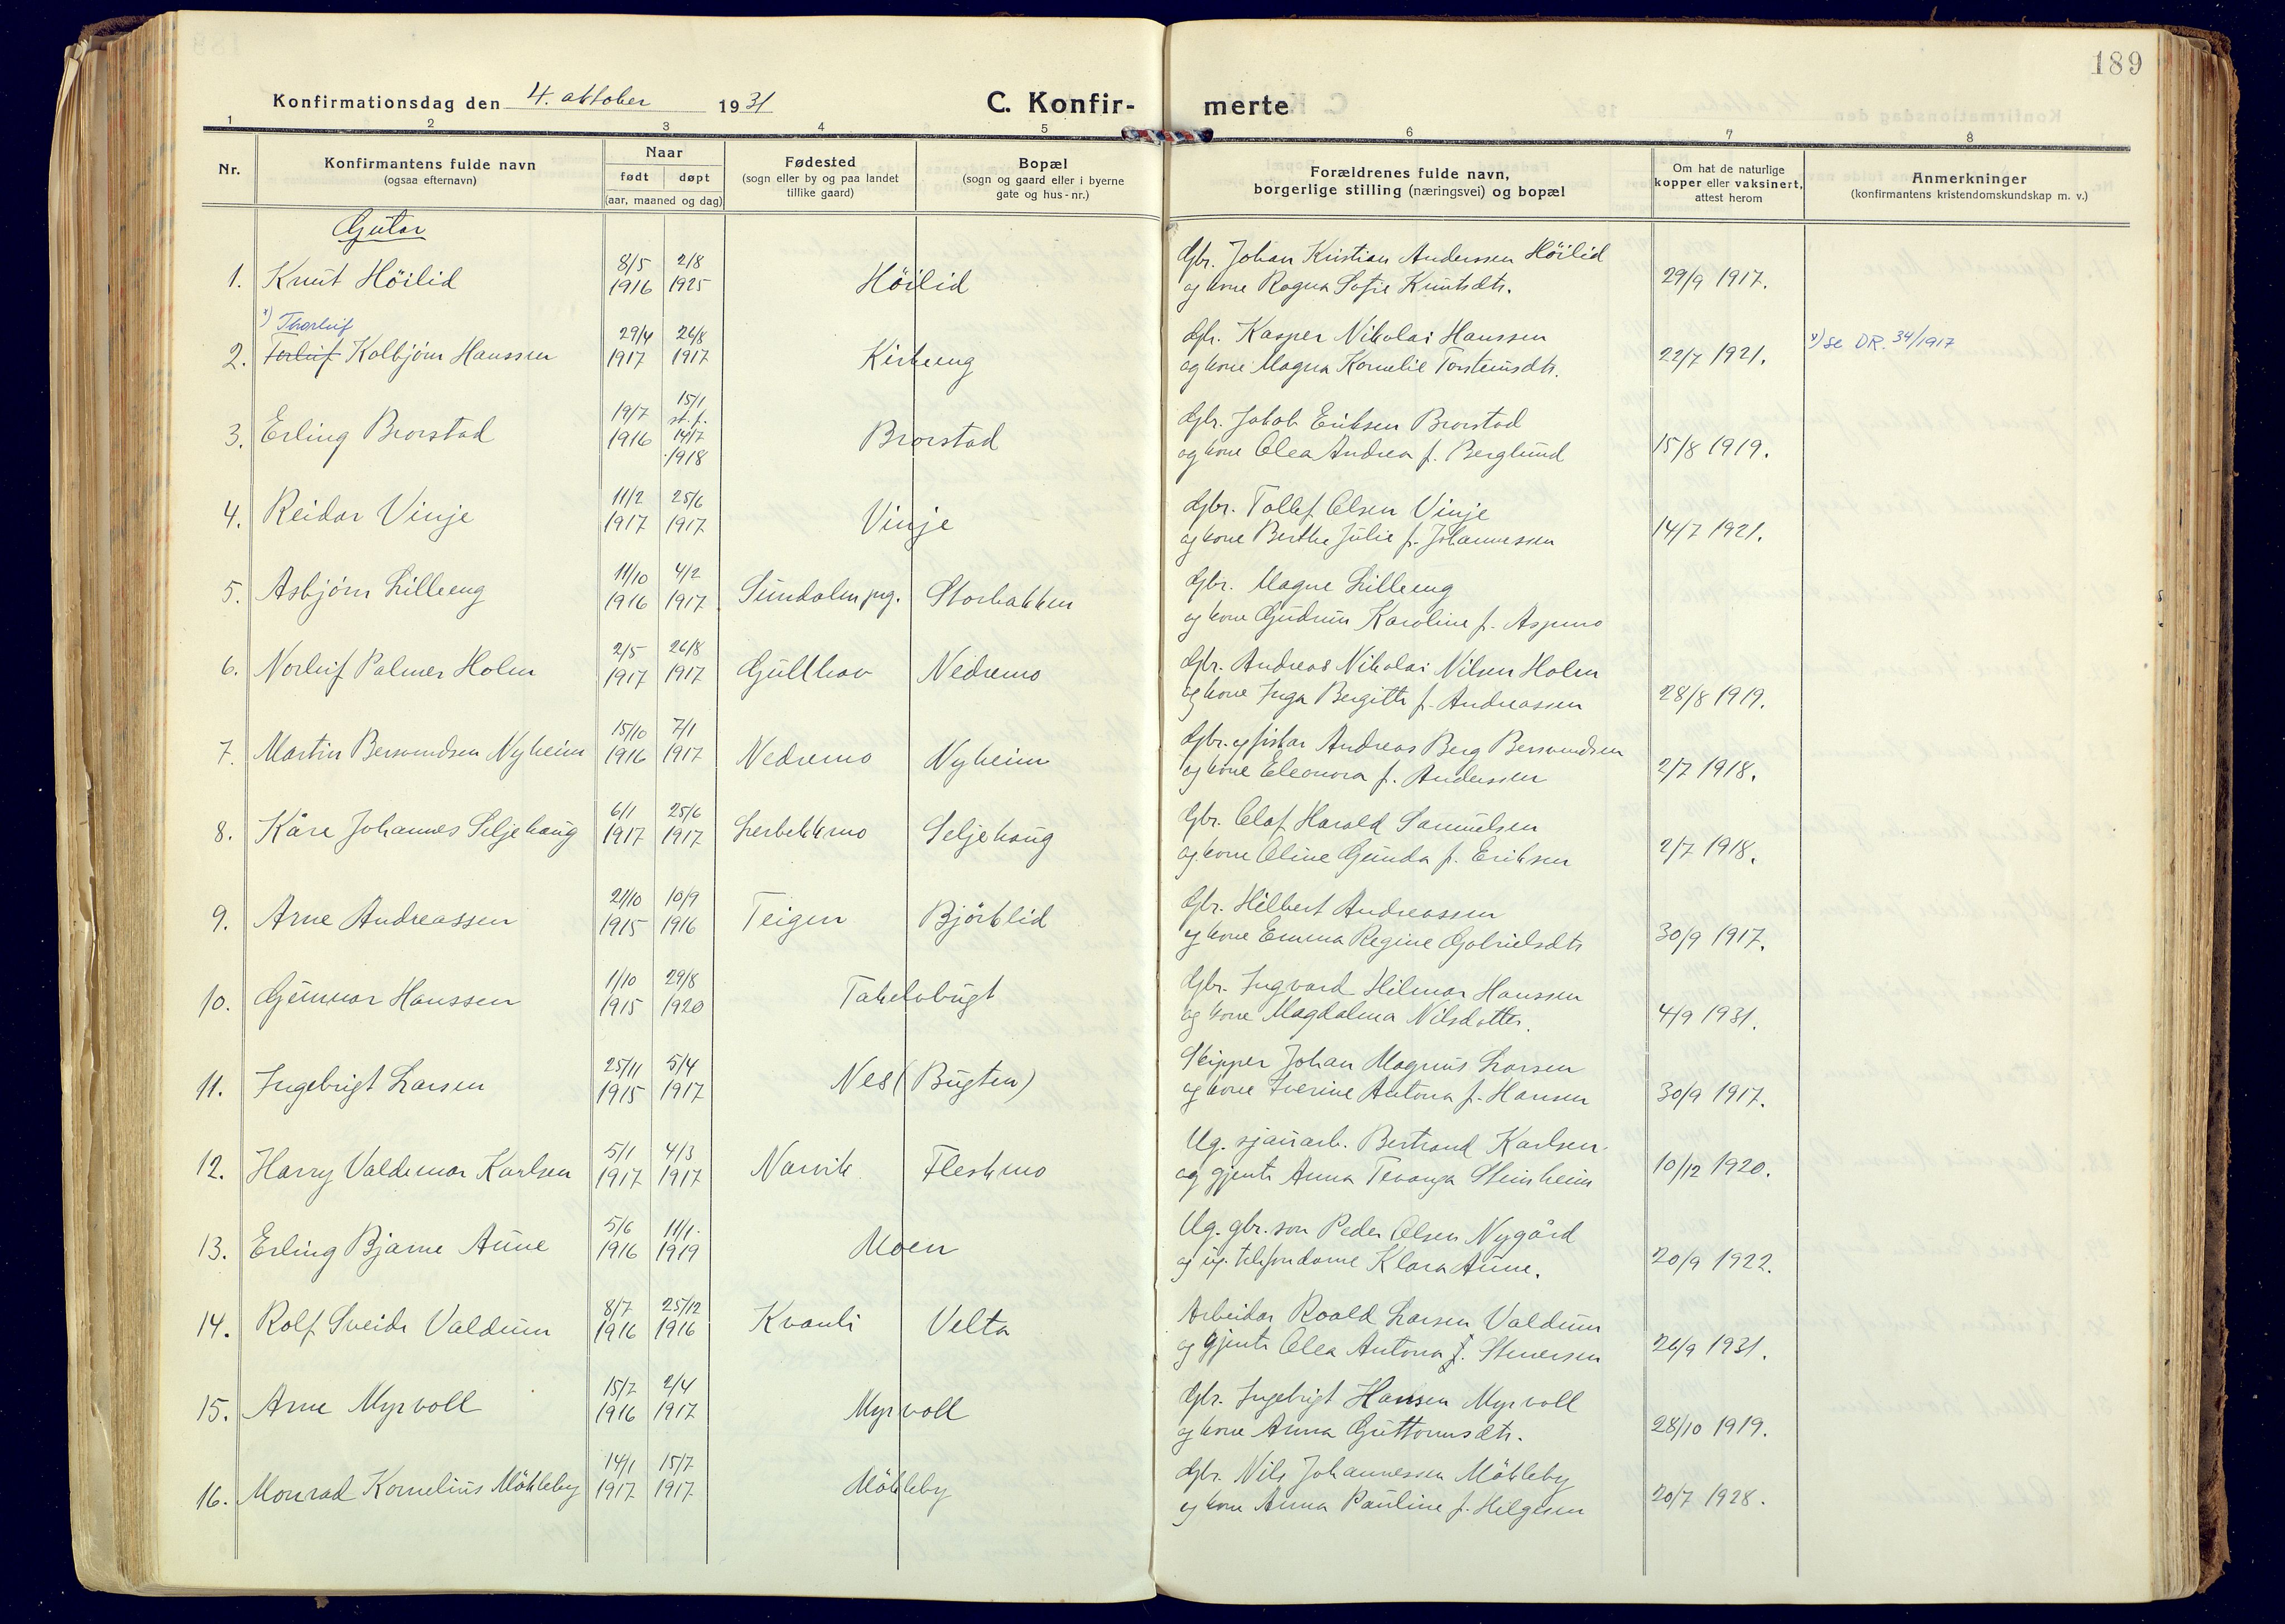 189
Konfirmationsdag den 4. oktober 1931 C. Konfirmerte
1 2 3 4 5 6 7 8
Nr. Konfirmantens fulde navn (ogsaa efternavn) Naar født døpt (aar, maaned og dag) Fødested (sogn eller by og paa landet tillike gaard) Bopæl (sogn og gaard eller i byerne gate og hus-nr.) Forældrenes fulde navn, borgerlige stilling (næringsvei) og bopæl Om hat de naturlige kopper eller vaksinert, attest herom Anmerkninger (konfirmantens kristendomskundskap m. v.)
Gutar
8/5 2/8 Gbr. Johan Kristian Anderssen Höilid
1. Knut Höilid 1916 1925 Höilid og kone Ragna Sofie Knutsdtr. 29/9 1917.
x) Thorleif
29/4 26/8 Gbr. Kasper Nikolai Hanssen x) se DR. 34/1917
2. Torleif Kolbjörn Hanssen 1917 1917 Kirkeeng og kone Magna Kornelie Torsteinsdtr. 22/7 1921.
19/7 15/1 st. f. Gbr. Jakob Eriksen Brorstad
3. Erling Brorstad 1916 14/7 1918 Brorstad og kone Olea Andrea f. Berglund 15/8 1919.
11/2 25/6 Gbr. Tollef Olsen Vinje
4. Reidar Vinje 1917 1917 Vinje og kone Berthe Julie f. Johannessen 14/7 1921.
11/10 4/2 Gbr. Magne Lilleeng
5. Asbjörn Lilleeng 1916 1917 Sundalen prg. Storbakken og kone Gudrun Karoline f. Aspmo
2/5 26/8 Gbr. Andreas Nikolai Nilsen Holm
6. Norleif Palmer Holm 1917 1917 Gullhav Nedremo og kone Inga Bergitte f. Andreassen 28/8 1919.
15/10 7/1 Gbr. og fiskar Andreas Berg Bersvendsen
7. Martin Bersvendsen Nyheim 1916 1917 Nedremo Nyheim og kone Eleonora f. Anderssen 2/7 1918.
6/1 25/6 Gbr. Olaf Harald Samuelsen
8. Kåre Johannes Seljehaug 1917 1917 Lerbekkmo Seljehaug og kone Oline Gunda f. Eriksen 2/7 1918.
21/10 10/9 Gbr. Hilbert Andreassen
9. Arne Andreassen 1915 1916 Teigen Björklid og kone Emma Regine Gabrielsdtr 30/9 1917.
1/10 29/8 Gbr. Ingvard Hilmar Hanssen
10. Gunnar Hanssen 1915 1920 Takelvbugt og kone Magdalena Nilsdotter. 4/9 1931.
25/11 5/4 Skipper Johan Magnus Larsen
11. Ingebrigt Larsen 1915 1917 Nes (Bugten) og kone Iverine Antona f. Hansen 30/9 1917.
5/1 4/3 Ug. sjauarb. Bertrand Karlsen
12. Harry Valdemar Karlsen 1917 1917 Narvik Fleskmo og gjente Anna Tevanga Steinheim 10/12 1920.
5/6 11/1. Ug. gbr. son Peder Olsen Nygård
13. Erling Bjarne Aune 1916 1919 Moen og ug. telefondame Klara Aune. 20/9 1922.
8/7 25/12 Arbeidar Roald Larsen Valdum
14. Rolf Sveide Valdum 1916 1916 Kvanli Velta og gjente Olea Antona f. Stenersen 26/9 1931.
15/7 2/4 Gbr. Ingebrigt Hansen Myrvoll
15. Arne Myrvoll 1916 1917 Myrvoll og kone Anna Guttormsdtr. 28/10 1919.
14/1 15/7 Gbr. Nils Johannessen Mökleby
16. Monrad Kornelius Mökleby 1917 1917 Mökleby og kone Anna Pauline f. Helgesen 20/7 1928.